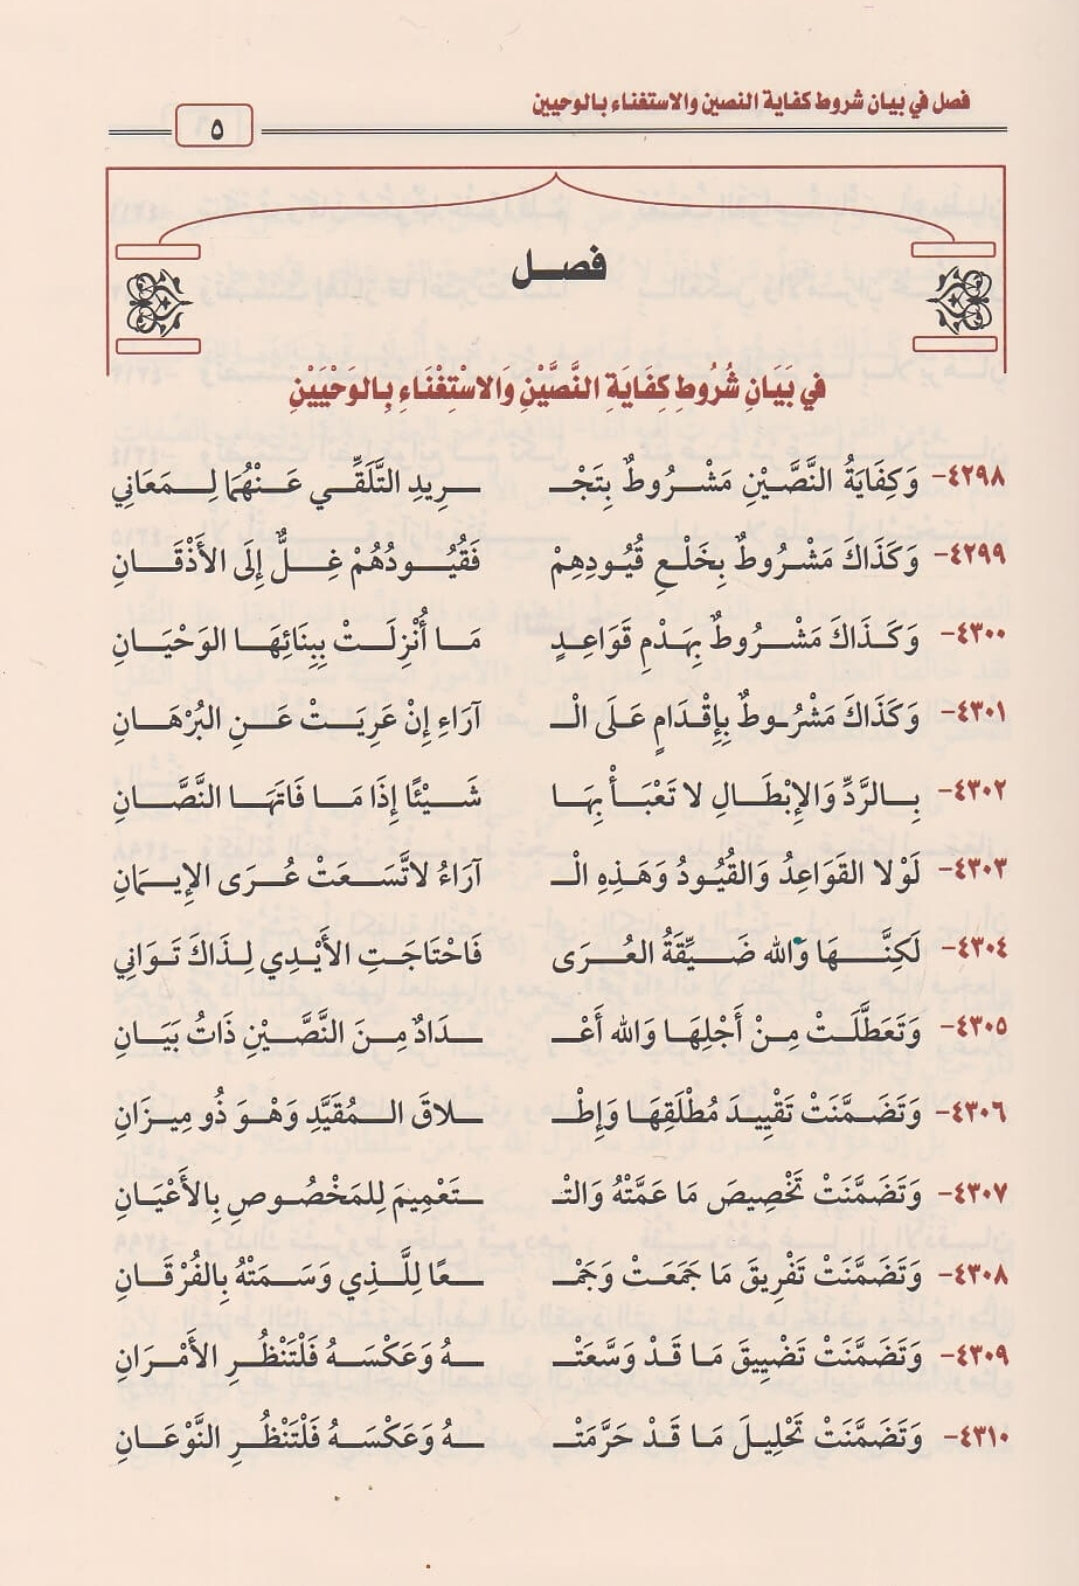 فصل في بيان شروط كفاية النصين والاستغناء بالوحيين
٥
فصل
فِي بَيَانِ شُرُوطِ كِفَايَةِ النَّصَّيْنِ وَالاسْتِغْنَاءِ بِالوَحْيَيْنِ
٤٢٩٨- وَكِفَايَةُ النَّصَّيْنِ مَشْرُوطٌ بِتَجْـ ـرِيدِ التَّلَقِّي عَنْهُمَا لِمَعَانِي
٤٢٩٩- وَكَذَاكَ مَشْرُوطٌ بِخَلْعِ قُيُودِهِمْ فَقُيُودُهُمْ غِلٌّ إِلَى الأَذْقَانِ
٤٣٠٠- وَكَذَاكَ مَشْرُوطٌ بِهَدْمِ قَوَاعِدٍ مَا أُنْزِلَتْ بِبِنَائِهَا الوَحْيَانِ
٤٣٠١- وَكَذَاكَ مَشْرُوطٌ بِإِقْدَامٍ عَلَى الْـ آرَاءِ إِنْ عَرِيَتْ عَنِ البُرْهَانِ
٤٣٠٢- بِالرَّدِّ وَالإِبْطَالِ لا تَعْبَأْ بِهَا شَيْئًا إِذَا مَا فَاتَهَا النَّصَّانِ
٤٣٠٣- لَوْلا القَوَاعِدُ وَالقُيُودُ وَهَذِهِ الْـ آرَاءُ لاتَّسَعَتْ عُرَى الإِيمَانِ
٤٣٠٤- لَكِنَّهَا وَالله ضَيِّقَةُ العُرَى فَاحْتَاجَتِ الأَيْدِي لِذَاكَ تَوَانِي
٤٣٠٥- وَتَعَطَّلَتْ مِنْ أَجْلِهَا وَالله أَعْـ ـدَادٌ مِنَ النَّصَّيْنِ ذَاتُ بَيَانِ
٤٣٠٦- وَتَضَمَّنَتْ تَقْيِيدَ مُطْلَقِهَا وَإِطْـ ـلاقَ المُقَيَّدِ وَهْوَ ذُو مِيزَانِ
٤٣٠٧- وَتَضَمَّنَتْ تَخْصِيصَ مَا عَمَّتْهُ وَالتْـ ـتَعْمِيمَ لِلمَخْصُوصِ بِالأَعْيَانِ
٤٣٠٨- وَتَضَمَّنَتْ تَفْرِيقَ مَا جَمَعَتْ وَجَمْـ ـعًا لِلَّذِي وَسَمَتْهُ بِالفُرْقَانِ
٤٣٠٩- وَتَضَمَّنَتْ تَضْيِيقَ مَا قَدْ وَسَّعَتْـ ـهُ وَعَكْسَهُ فَلْتَنْظُرِ الأَمْرَانِ
٤٣١٠- وَتَضَمَّنَتْ تَحْلِيلَ مَا قَدْ حَرَّمَتْـ ـهُ وَعَكْسَهُ فَلْتَنْظُرِ النَّوْعَانِ